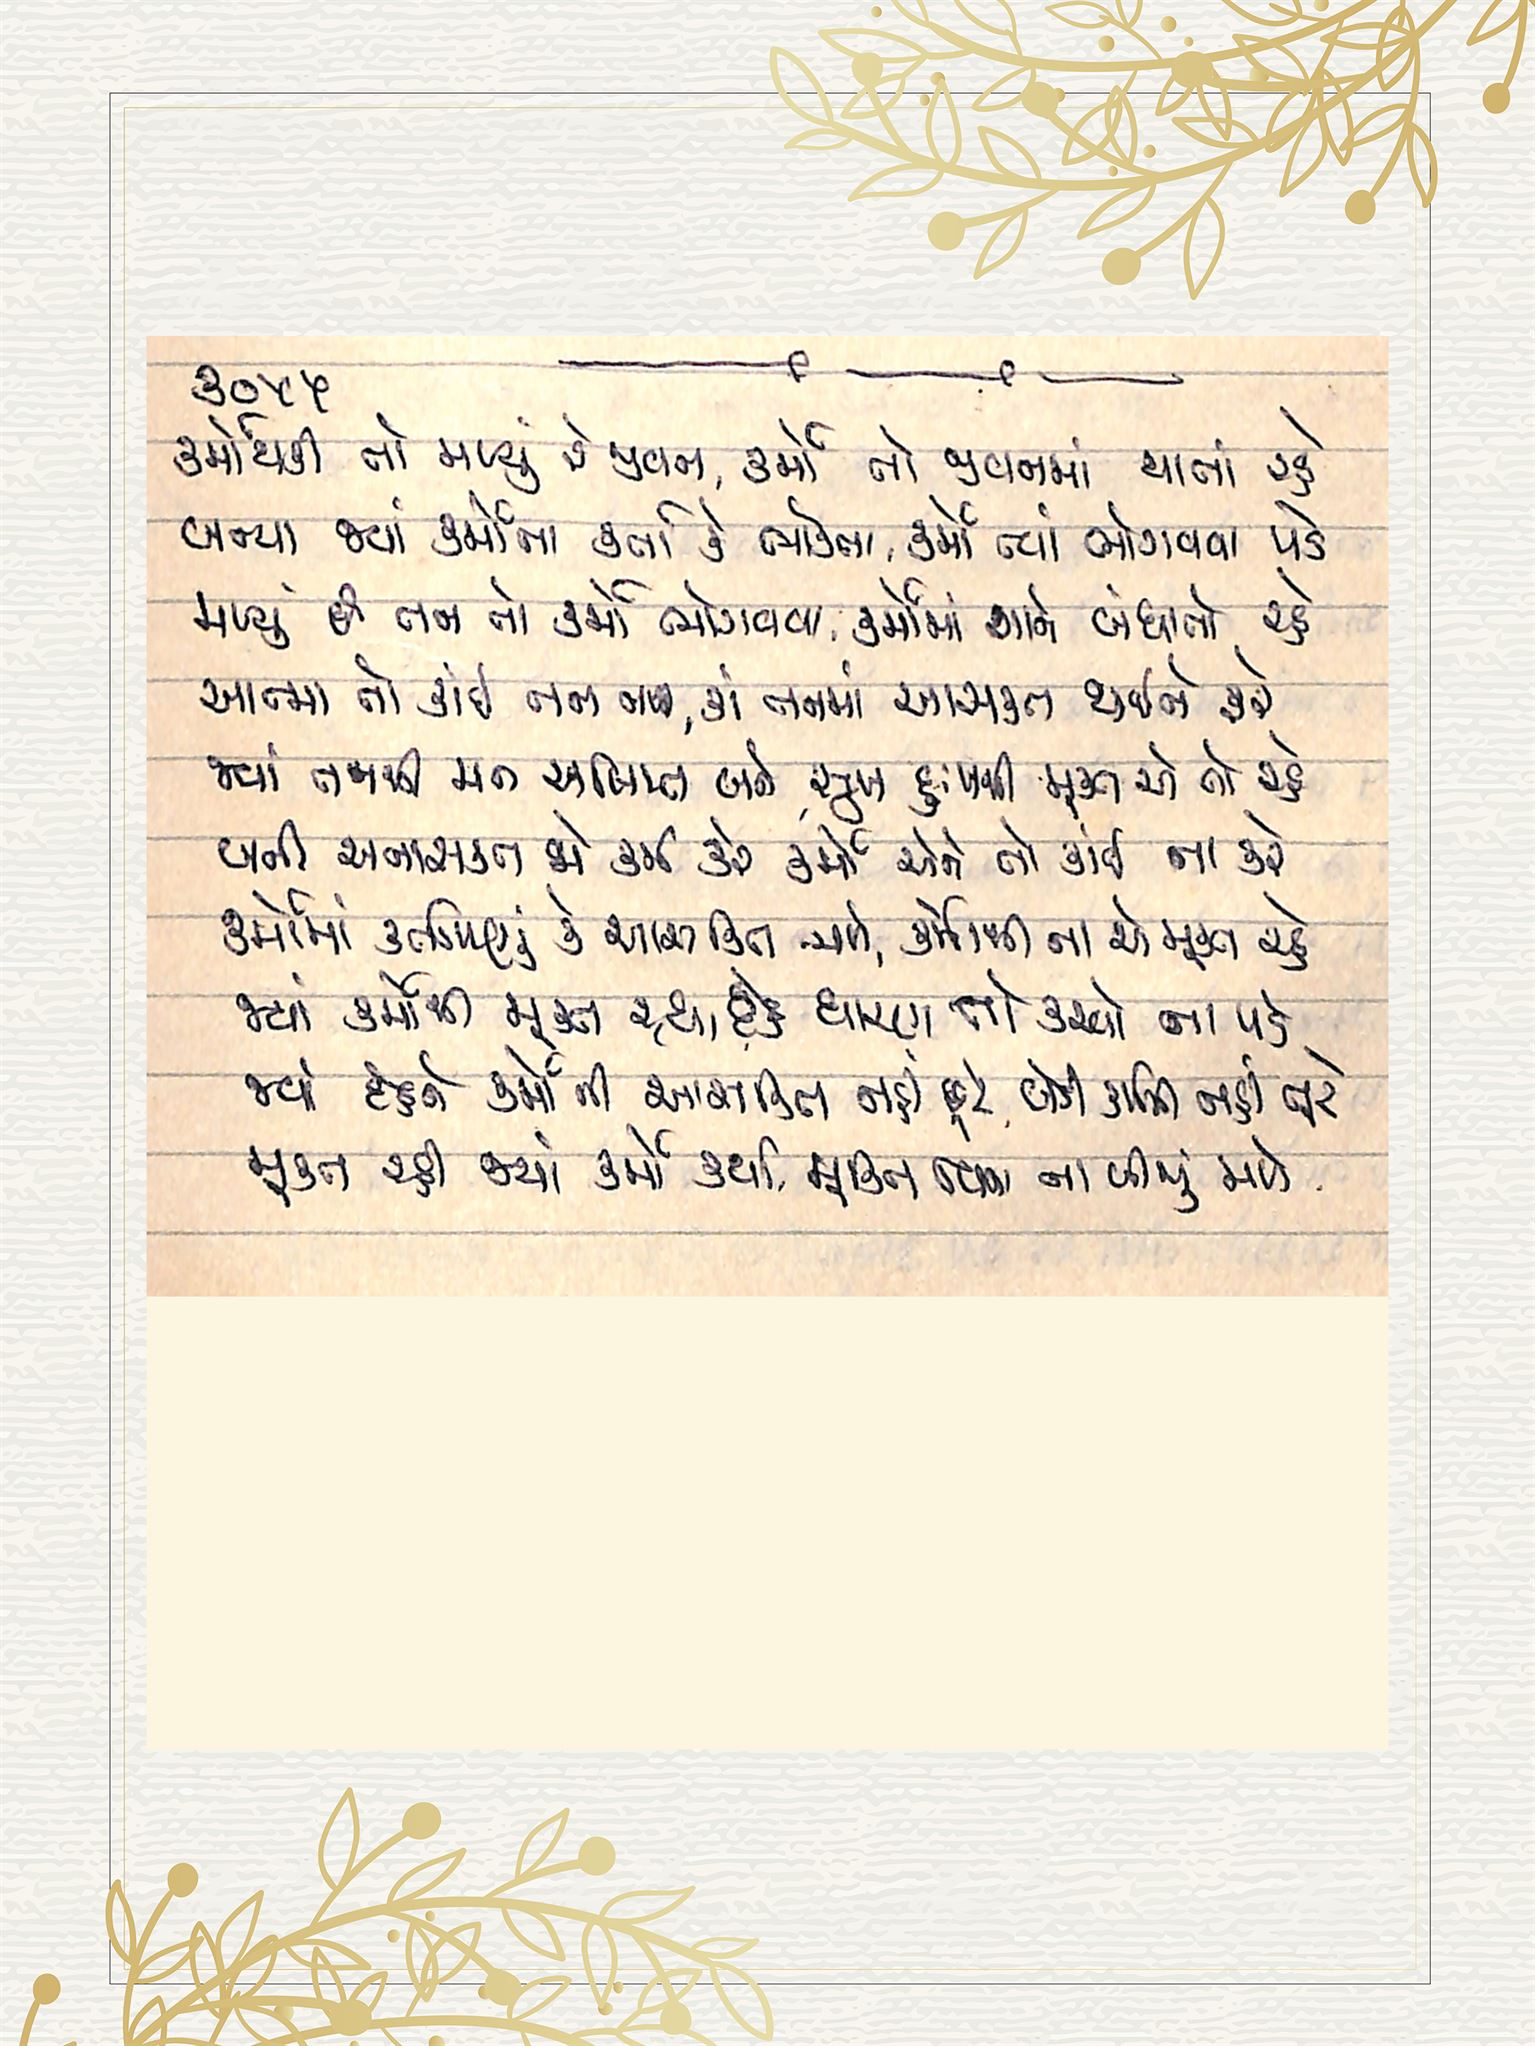 ૩૦૪૫
કર્મોથકી તો મળ્યું છે જીવન, કર્મો તો જીવનમાં થાતાં રહે
બન્યા જ્યાં કર્મોના કર્તા કે ભોક્તા, કર્મો ત્યાં ભોગવવા પડે
મળ્યું છે તન તો કર્મો ભોગવવા, કર્મોમાં શાને બંધાતો રહે
આત્મા તો કાંઈ તન નથી, કાં તનમાં આસક્ત થઈને ફરે
જ્યાં તનથી મન અલિપ્ત બને, સુખ દુઃખથી મુક્ત એ તો રહે
બની અનાસક્ત જે કર્મ કરે કર્મો એને તો કાંઈ ના કરે
કર્મોમાં કર્તાપણું કે આસક્તિ મળે, કર્મોથી ના એ મુક્ત રહે
જ્યાં કર્મોથી મુક્ત થયા, દેહ ધારણ તો કરવો ના પડે
જ્યાં દેહને કર્મોની આસક્તિ નહીં છૂટે, જન્મ ફેરા નહીં તૂટે
મુક્ત રહી જ્યાં કર્મો કર્યા, મુક્તિ વિના ના બીજું મળે.